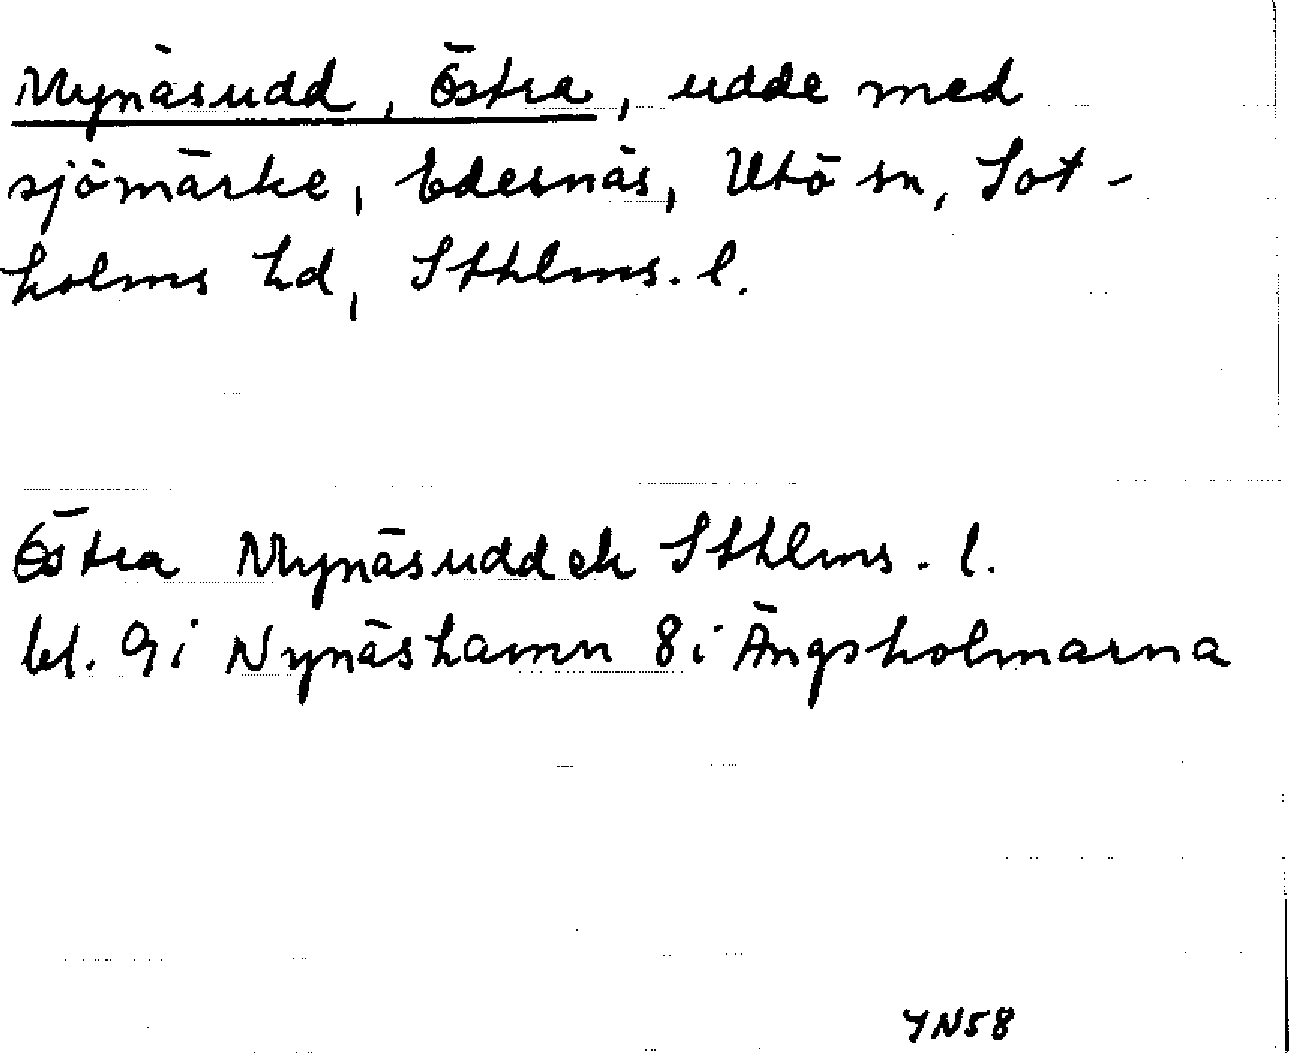 Mynäsudd, Östra, udde med
sjömärke, Edesnäs, Utö sn, Sot-
holms hd, Sthlms. l.
Östra Mynäsudden Sthlms. l.
bl. 9i Nynäshamn 8i Ängsholmarna
YN58